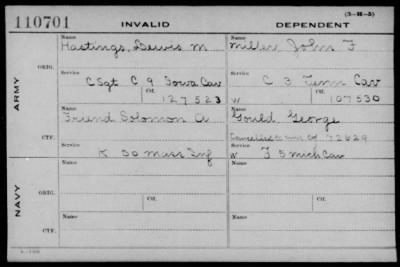 110701 INVALID DEPENDENT (3-H-5)
Name Name
Hastings, Lewis M Miller John F
ORIG.
Service Service
C Sgt C 9 Iowa Cav C 3 Tenn Cav
Ctf. Ctf.
127523 W 107530
ARMY
Name Name
Friend Solomon A Gould George
CTF.
72629
Service Service
K 50 Mass Inf W F 5 Mich Cav
NAVY
Name Name
ORIG.
Service Ctf. Service Ctf.
Name Name
CTF.
Service Service